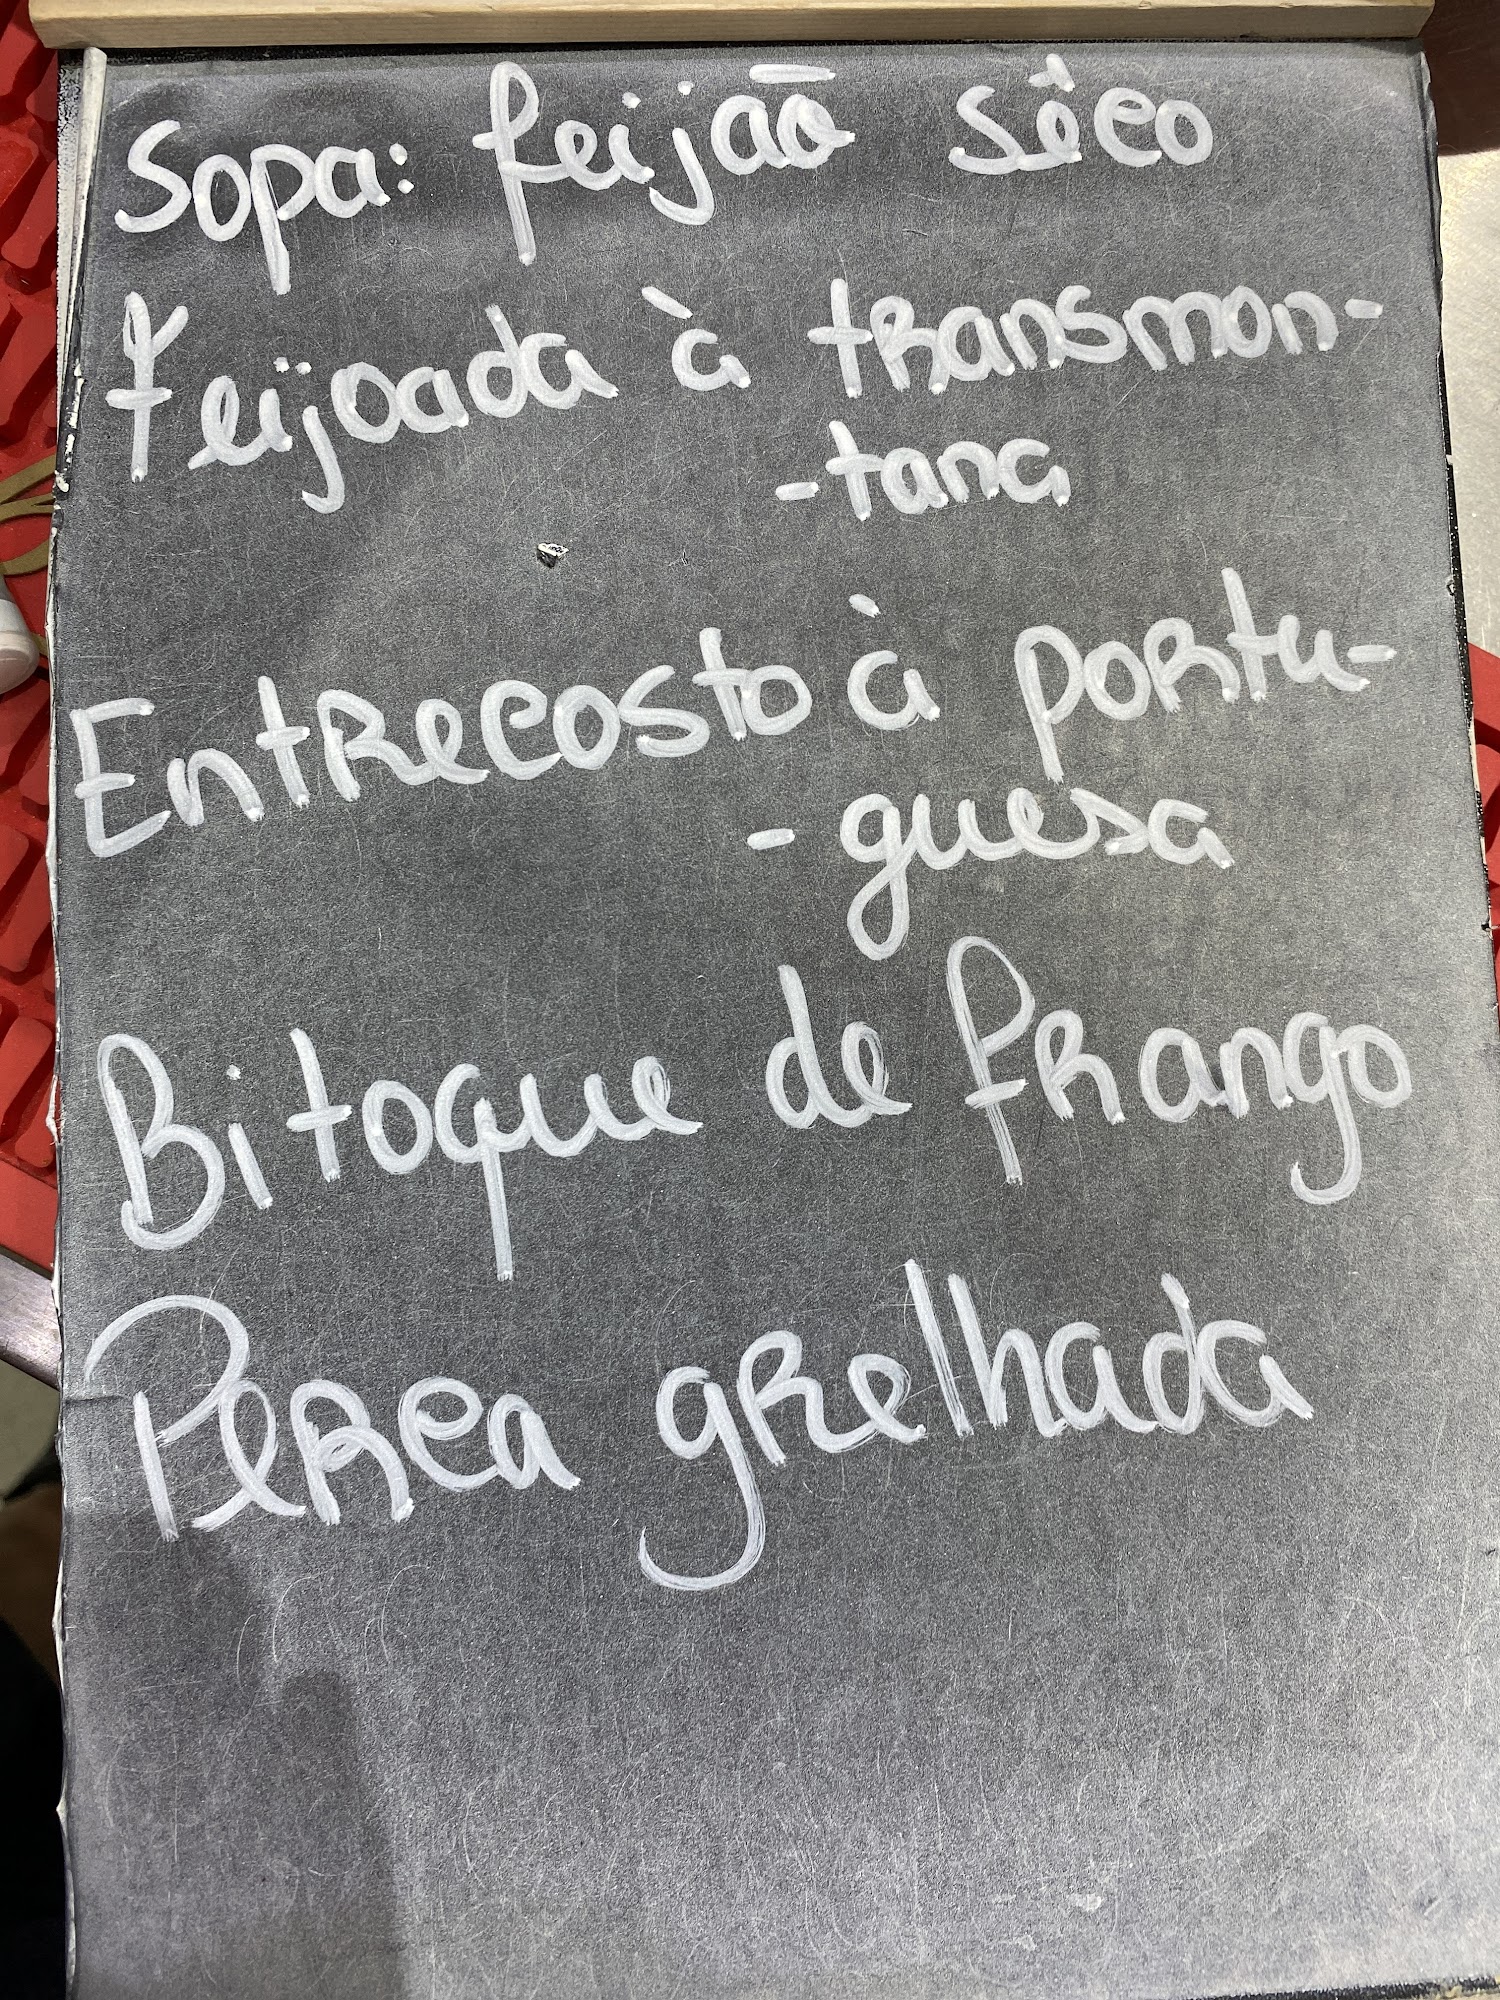 Sopa: feijão sêco
Feijoada à transmon-
-tana
Entrecosto à portu-
-guesa
Bitoque de frango
Perca grelhada